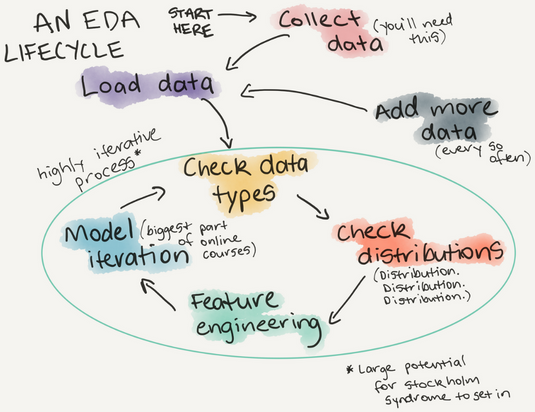 AN EDA
LIFECYCLE
START
HERE
Collect
data
(you'll need
this)
Load data
Add more
data
(every so
often)
highly iterative
process*
Check data
types
Check
distributions
(Distribution.
Distribution.
Distribution.)
Feature
engineering
Model
iteration
(biggest part
of online
courses)
* Large potential
for stockholm
syndrome to set in